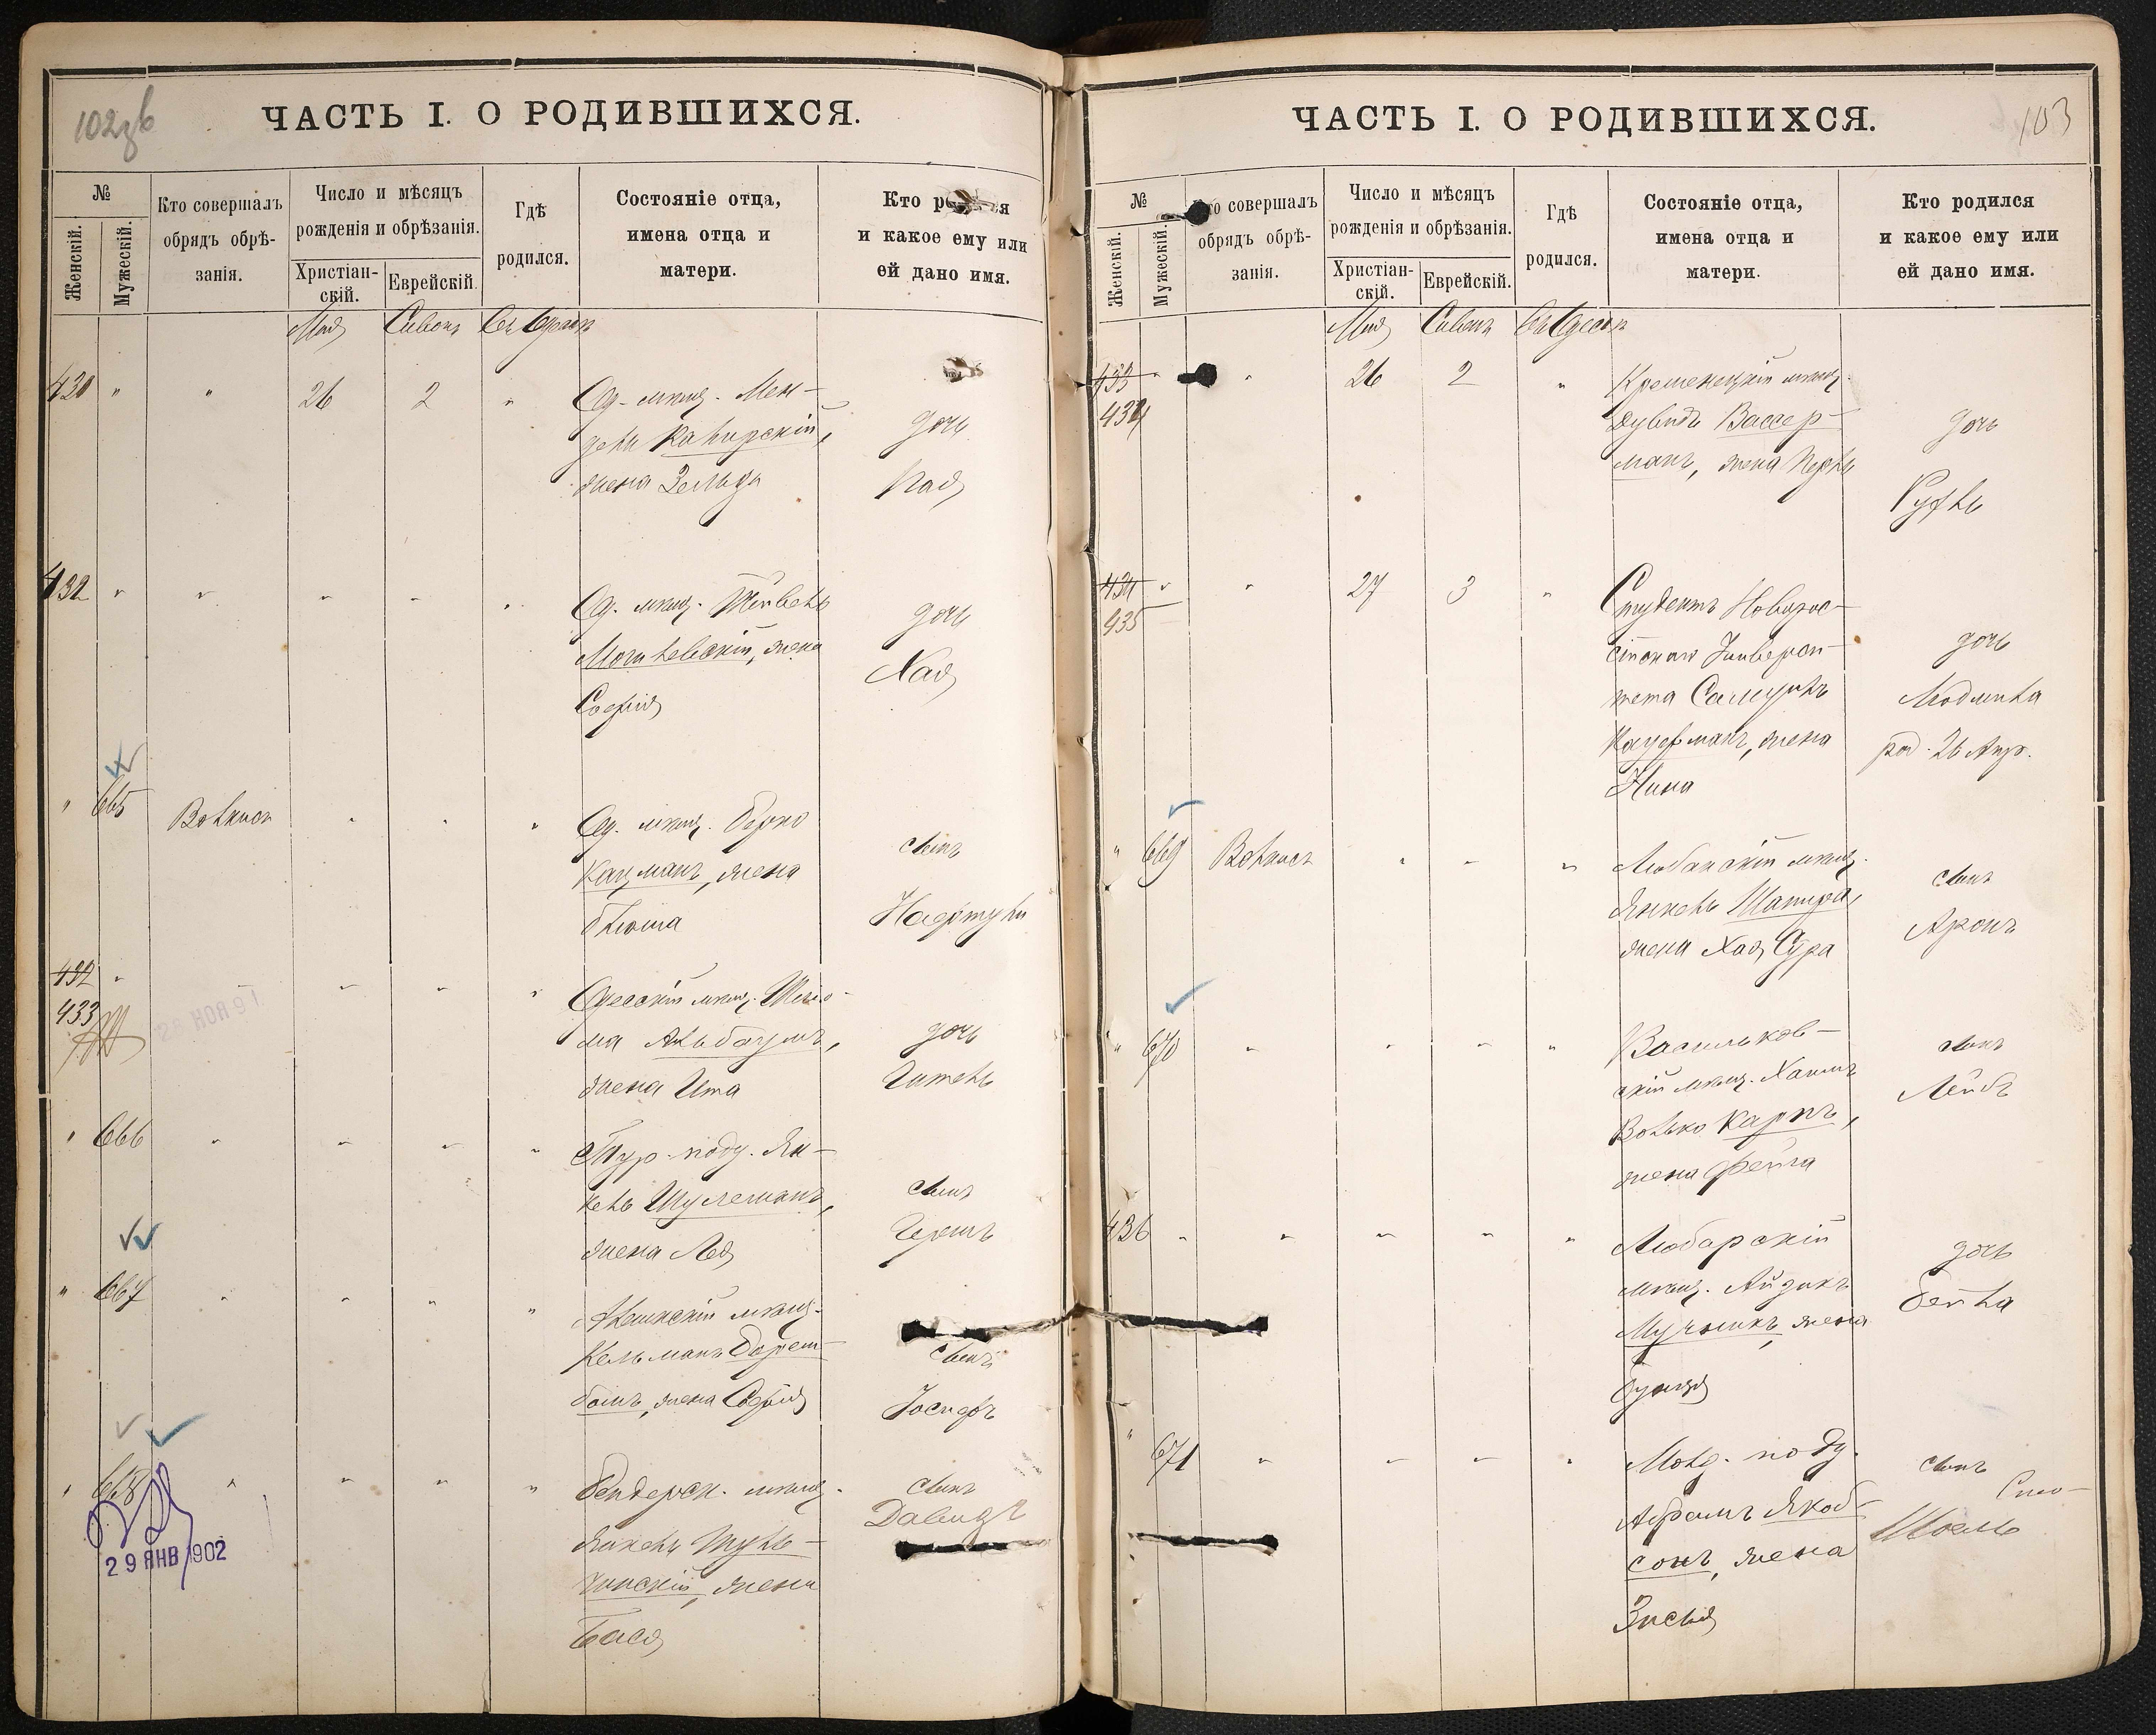 102об
ЧАСТЬ I. О РОДИВШИХСЯ.
№
Женскій.
Мужескій.
Кто совершалъ
обрядъ обрѣ-
занія.
Число и мѣсяцъ
рожденія и обрѣзанія.
Христіан-
скій.
Еврейскій.
Гдѣ
родился.
Состояніе отца,
имена отца и
матери.
Кто
и какое ему или
ей дано имя.
Мая Сивонъ Въ Одессѣ
26 2 " Од. мѣщ. Мен-
дель Каһирскій,
жена Зельда
дочь
432 " " " " " Од. мѣщ.
Могилевскій, жена
Софія
дочь
Хая
" 665 " " " Од. мѣщ. Берко
Кацманъ, жена
Блюма
сынъ
Нафтули
432 "
433
Одесскій мѣщ.
жена Ита
дочь
Гитель
28 НОЯ 91
" 666 " " " " Тур. подд. Ян-
кель
жена Лея
сынъ
Гершъ
" 667 " " " " мѣщ.
Кельманъ
жена Софія
сынъ
Іосифъ
" 668 " " " " Бендерск. мѣщ.
Янкель Туль-
чинскій, жена
Бася
сынъ
Давидъ
29 ЯНВ 1902
103
ЧАСТЬ I. О РОДИВШИХСЯ.
№
Женскій.
Мужескій.
Кто совершалъ
обрядъ обрѣ-
занія.
Число и мѣсяцъ
рожденія и обрѣзанія.
Христіан-
скій.
Еврейскій.
Гдѣ
родился.
Состояніе отца,
имена отца и
матери.
Кто родился
и какое ему или
ей дано имя.
Мая Сивонъ Въ Одессѣ
433 " " 26 2 " Кременецкій мѣщ.
434
Дувидъ Вассер-
манъ, жена Перль
дочь
Руфль
434 " " 27 3 " Студентъ Новорос-
435
сійскаго Универси-
тета Самуилъ
Кауфманъ, жена
Нина
дочь
Людмила
род. 26 Апр.
" 669 " " " Любанскій мѣщ.
Янкель Шапира,
жена Хая Сура
сынъ
Аронъ
" 670 " " " " Васильков-
скій мѣщ. Хаимъ
Волько Карпъ,
жена Фейга
сынъ
Лейбъ
436 " " " " " Любарскій
мѣщ. Айзикъ
Мучникъ, жена
дочь
Бейла
" 671 " " " " Молд. подд.
Абрамъ Якоб-
сонъ, жена
Зисля
сынъ
Шоель